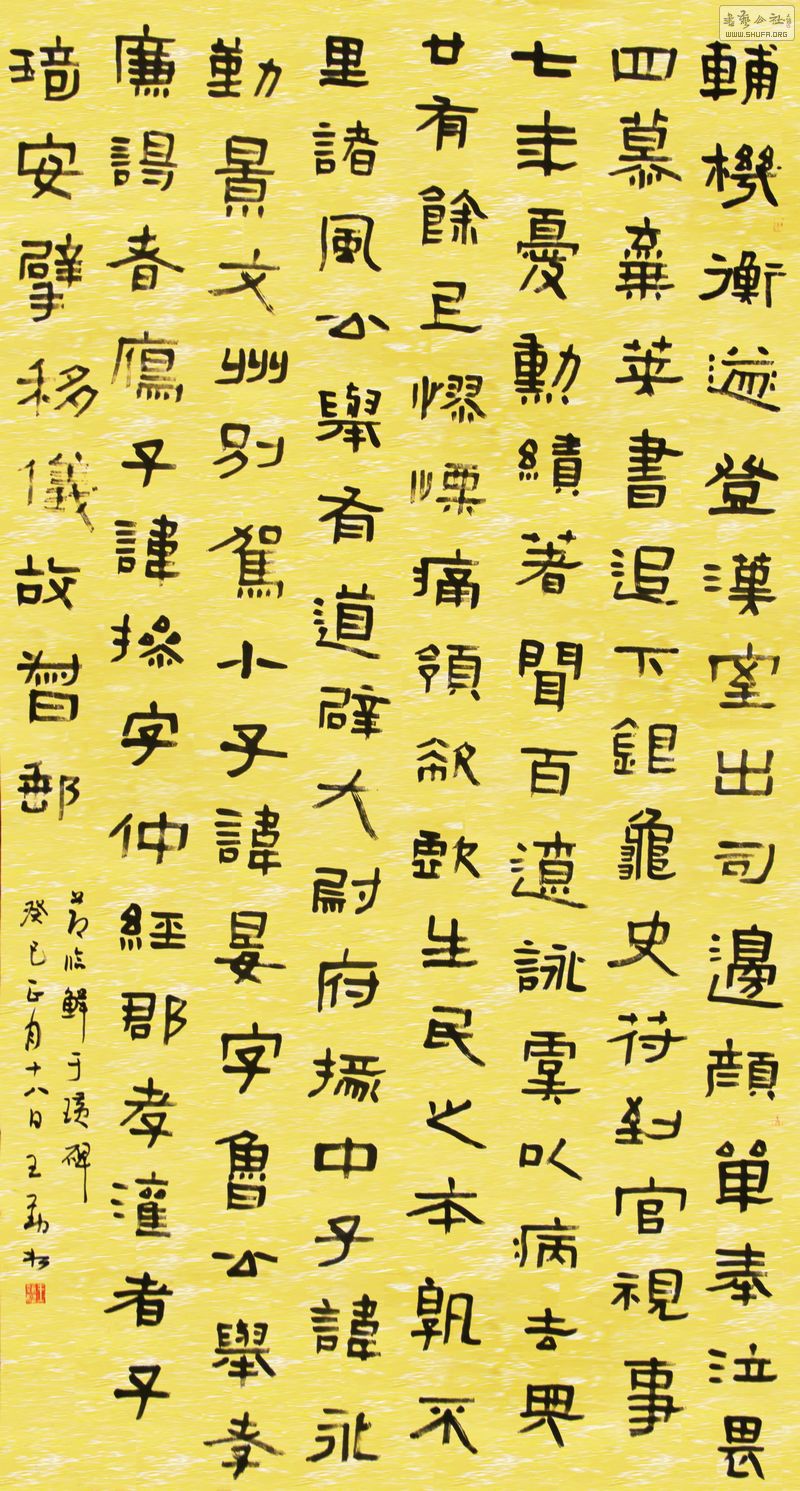 書藝公社
WWW.SHUFA.ORG
輔機衡遊登漢室出司邊顔單奉泣畏
四慕棄英書追下銀龜史苻到官視事
七年憂勳績著聞百遺詠虞以病去典
廿有餘已憀慄痛領欷生民之本孰不
里諸風公舉有道辟大尉府掾中子諱永
勤景文州別駕小子諱晏字魯公舉孝
廉謁者雁子諱操字仲經郡孝灌者子
琦安擘移儀故督郵
節臨鮮于璜碑
癸巳正月十八日王勁松